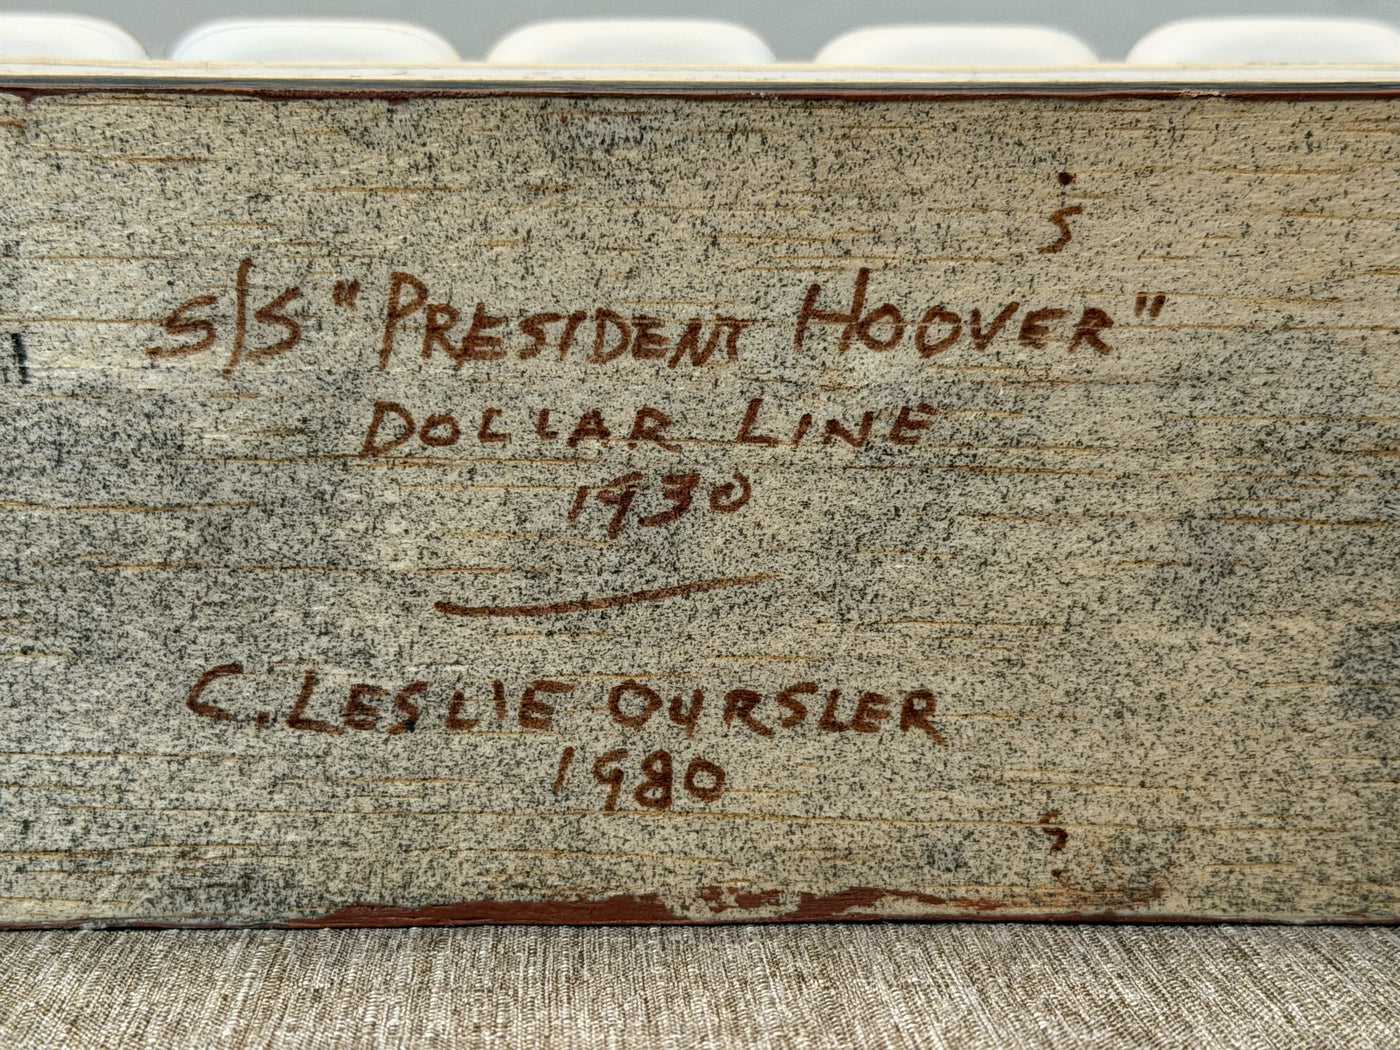 S
S/S "PRESIDENT HOOVER"
DOLLAR LINE
1930
C. LESLIE OURSLER
1980
S